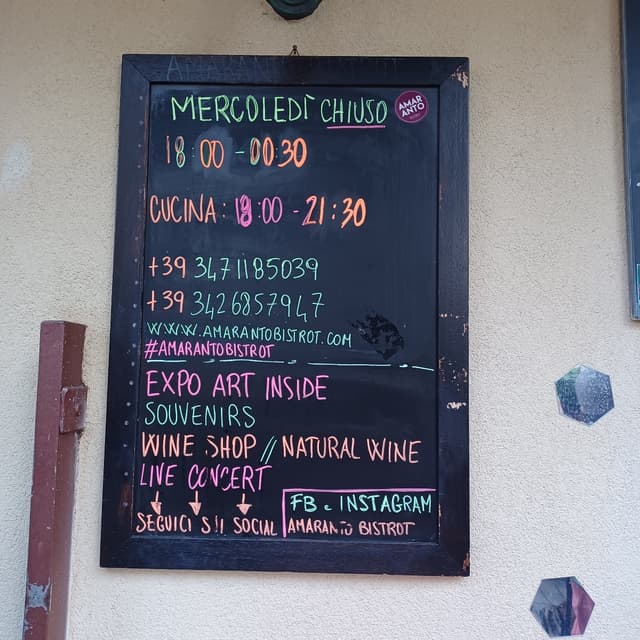 MERCOLEDÌ CHIUSO
AMAR
ANTO
18:00 - 00:30
CUCINA: 18:00 - 21:30
+39 3471185039
+39 3426857947
WWW.AMARANTOBISTROT.COM
#AMARANTOBISTROT
EXPO ART INSIDE
SOUVENIRS
WINE SHOP // NATURAL WINE
LIVE CONCERT
FB e INSTAGRAM
SEGUICI SUI SOCIAL AMARANTO BISTROT